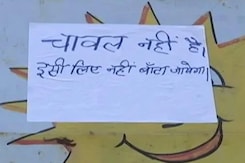 चावल नहीं है।
इसी लिए नहीं बाँटा जायेगा।